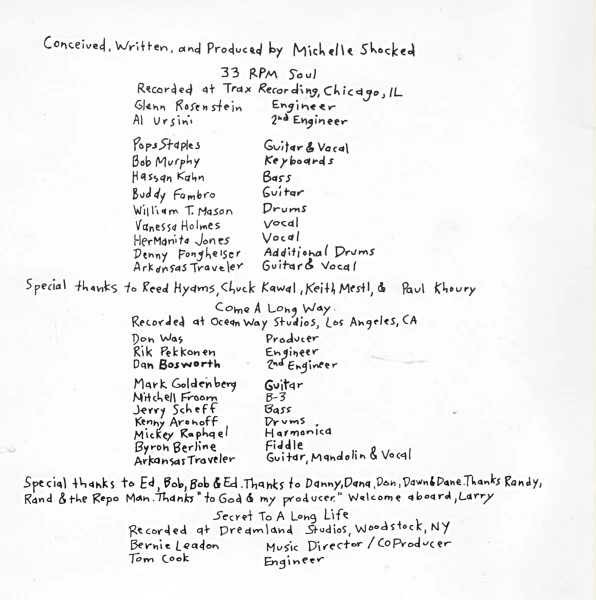 Conceived, Written, and Produced by Michelle Shocked
33 RPM Soul
Recorded at Trax Recording, Chicago, IL
Glenn Rosenstein Engineer
Al Ursini 2nd Engineer
Pops Staples Guitar & Vocal
Bob Murphy Keyboards
Hassan Kahn Bass
Buddy Fambro Guitar
William T. Mason Drums
Vanessa Holmes Vocal
HerManita Jones Vocal
Denny Fongheiser Additional Drums
Arkansas Traveler Guitar & Vocal
Special thanks to Reed Hyams, Chuck Kawal, Keith Mestl, & Paul Khoury
Come A Long Way
Recorded at Ocean Way Studios, Los Angeles, CA
Don Was Producer
Rik Pekkonen Engineer
Dan Bosworth 2nd Engineer
Mark Goldenberg Guitar
Mitchell Froom B-3
Jerry Scheff Bass
Kenny Aronoff Drums
Mickey Raphael Harmonica
Byron Berline Fiddle
Arkansas Traveler Guitar, Mandolin & Vocal
Special thanks to Ed, Bob, Bob & Ed. Thanks to Danny, Dana, Don, Dawn & Dane. Thanks Randy,
Rand & the Repo Man. Thanks "to God & my producer." Welcome aboard, Larry
Secret To A Long Life
Recorded at Dreamland Studios, Woodstock, NY
Bernie Leadon Music Director / CoProducer
Tom Cook Engineer